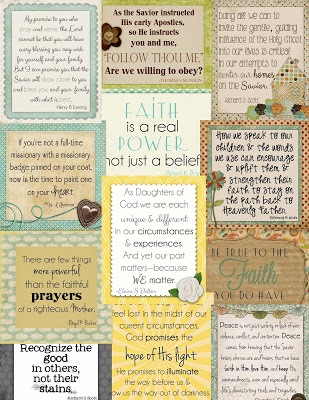 My promise to you who
pray and serve the Lord
cannot be that you will have
every blessing you may wish
for yourself and your family.
But I can promise you that the
Savior will draw close to you
and bless you and your family
with what is best.
Henry B Eyring
As the Savior instructed
His early Apostles,
so He instructs
you and me,
"FOLLOW THOU ME"
Are we willing to obey?
-THOMAS S MONSON
Doing all we can to
invite the gentle, guiding
influence of the Holy Ghost
into our lives is critical
in our attempts to
center our homes
on the Savior.
Richard G Scott
If you're not a full-time
missionary with a missionary
badge pinned on your coat,
now is the time to paint one
on your heart.
FAITH
is a real
POWER
not just a belief
How we speak to our
children & the words
we use can encourage
& uplift them &
strengthen their
faith to stay on
the path back to
Heavenly Father.
As Daughters of
God we are each
unique & different
in our circumstances
& experiences.
And yet our part
matters-because
WE matter.
Elaine S Dalton
There are few things
more powerful
than the faithful
prayers
of a righteous Mother.
Boyd K Packer
BE TRUE TO THE
Faith
YOU DO HAVE
Recognize the
good
in others,
not their
stains.
Richard G Scott
feel lost in the midst of our
current circumstances,
God promises the
hope of His light
He promises to illuminate
the way before us &
show us the way out of darkness
Peace